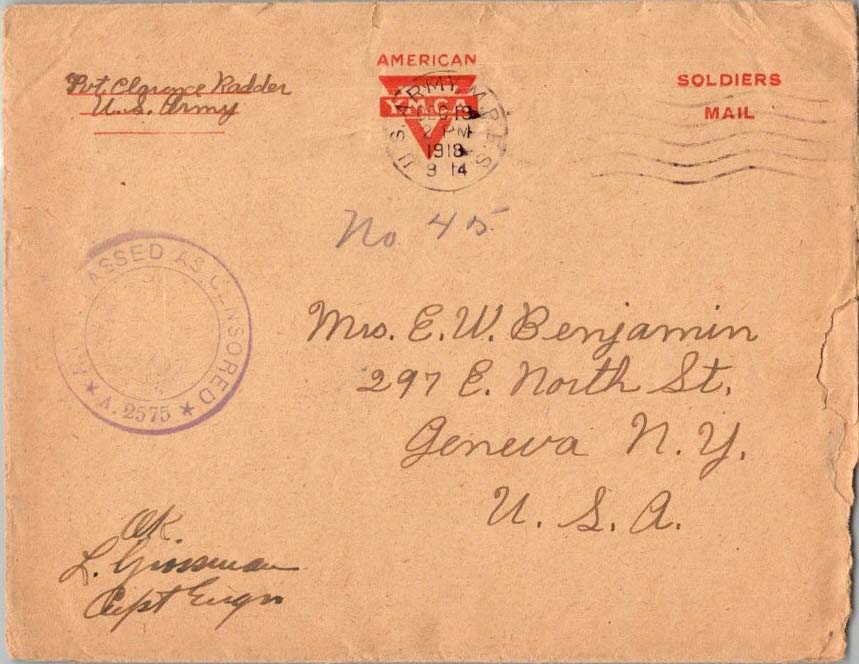 Pvt. Clarence Radder
U.S. Army
AMERICAN
YMCA
SOLDIERS
MAIL
U.S. ARMY M.P.E.S.
DEC 19
2 PM
1918
No. 45
PASSED AS CENSORED
A. 2575
Mrs. E. W. Benjamin
297 E. North St.
Geneva N. Y.
U. S. A.
OK.
L. Grossman
Capt Engrs